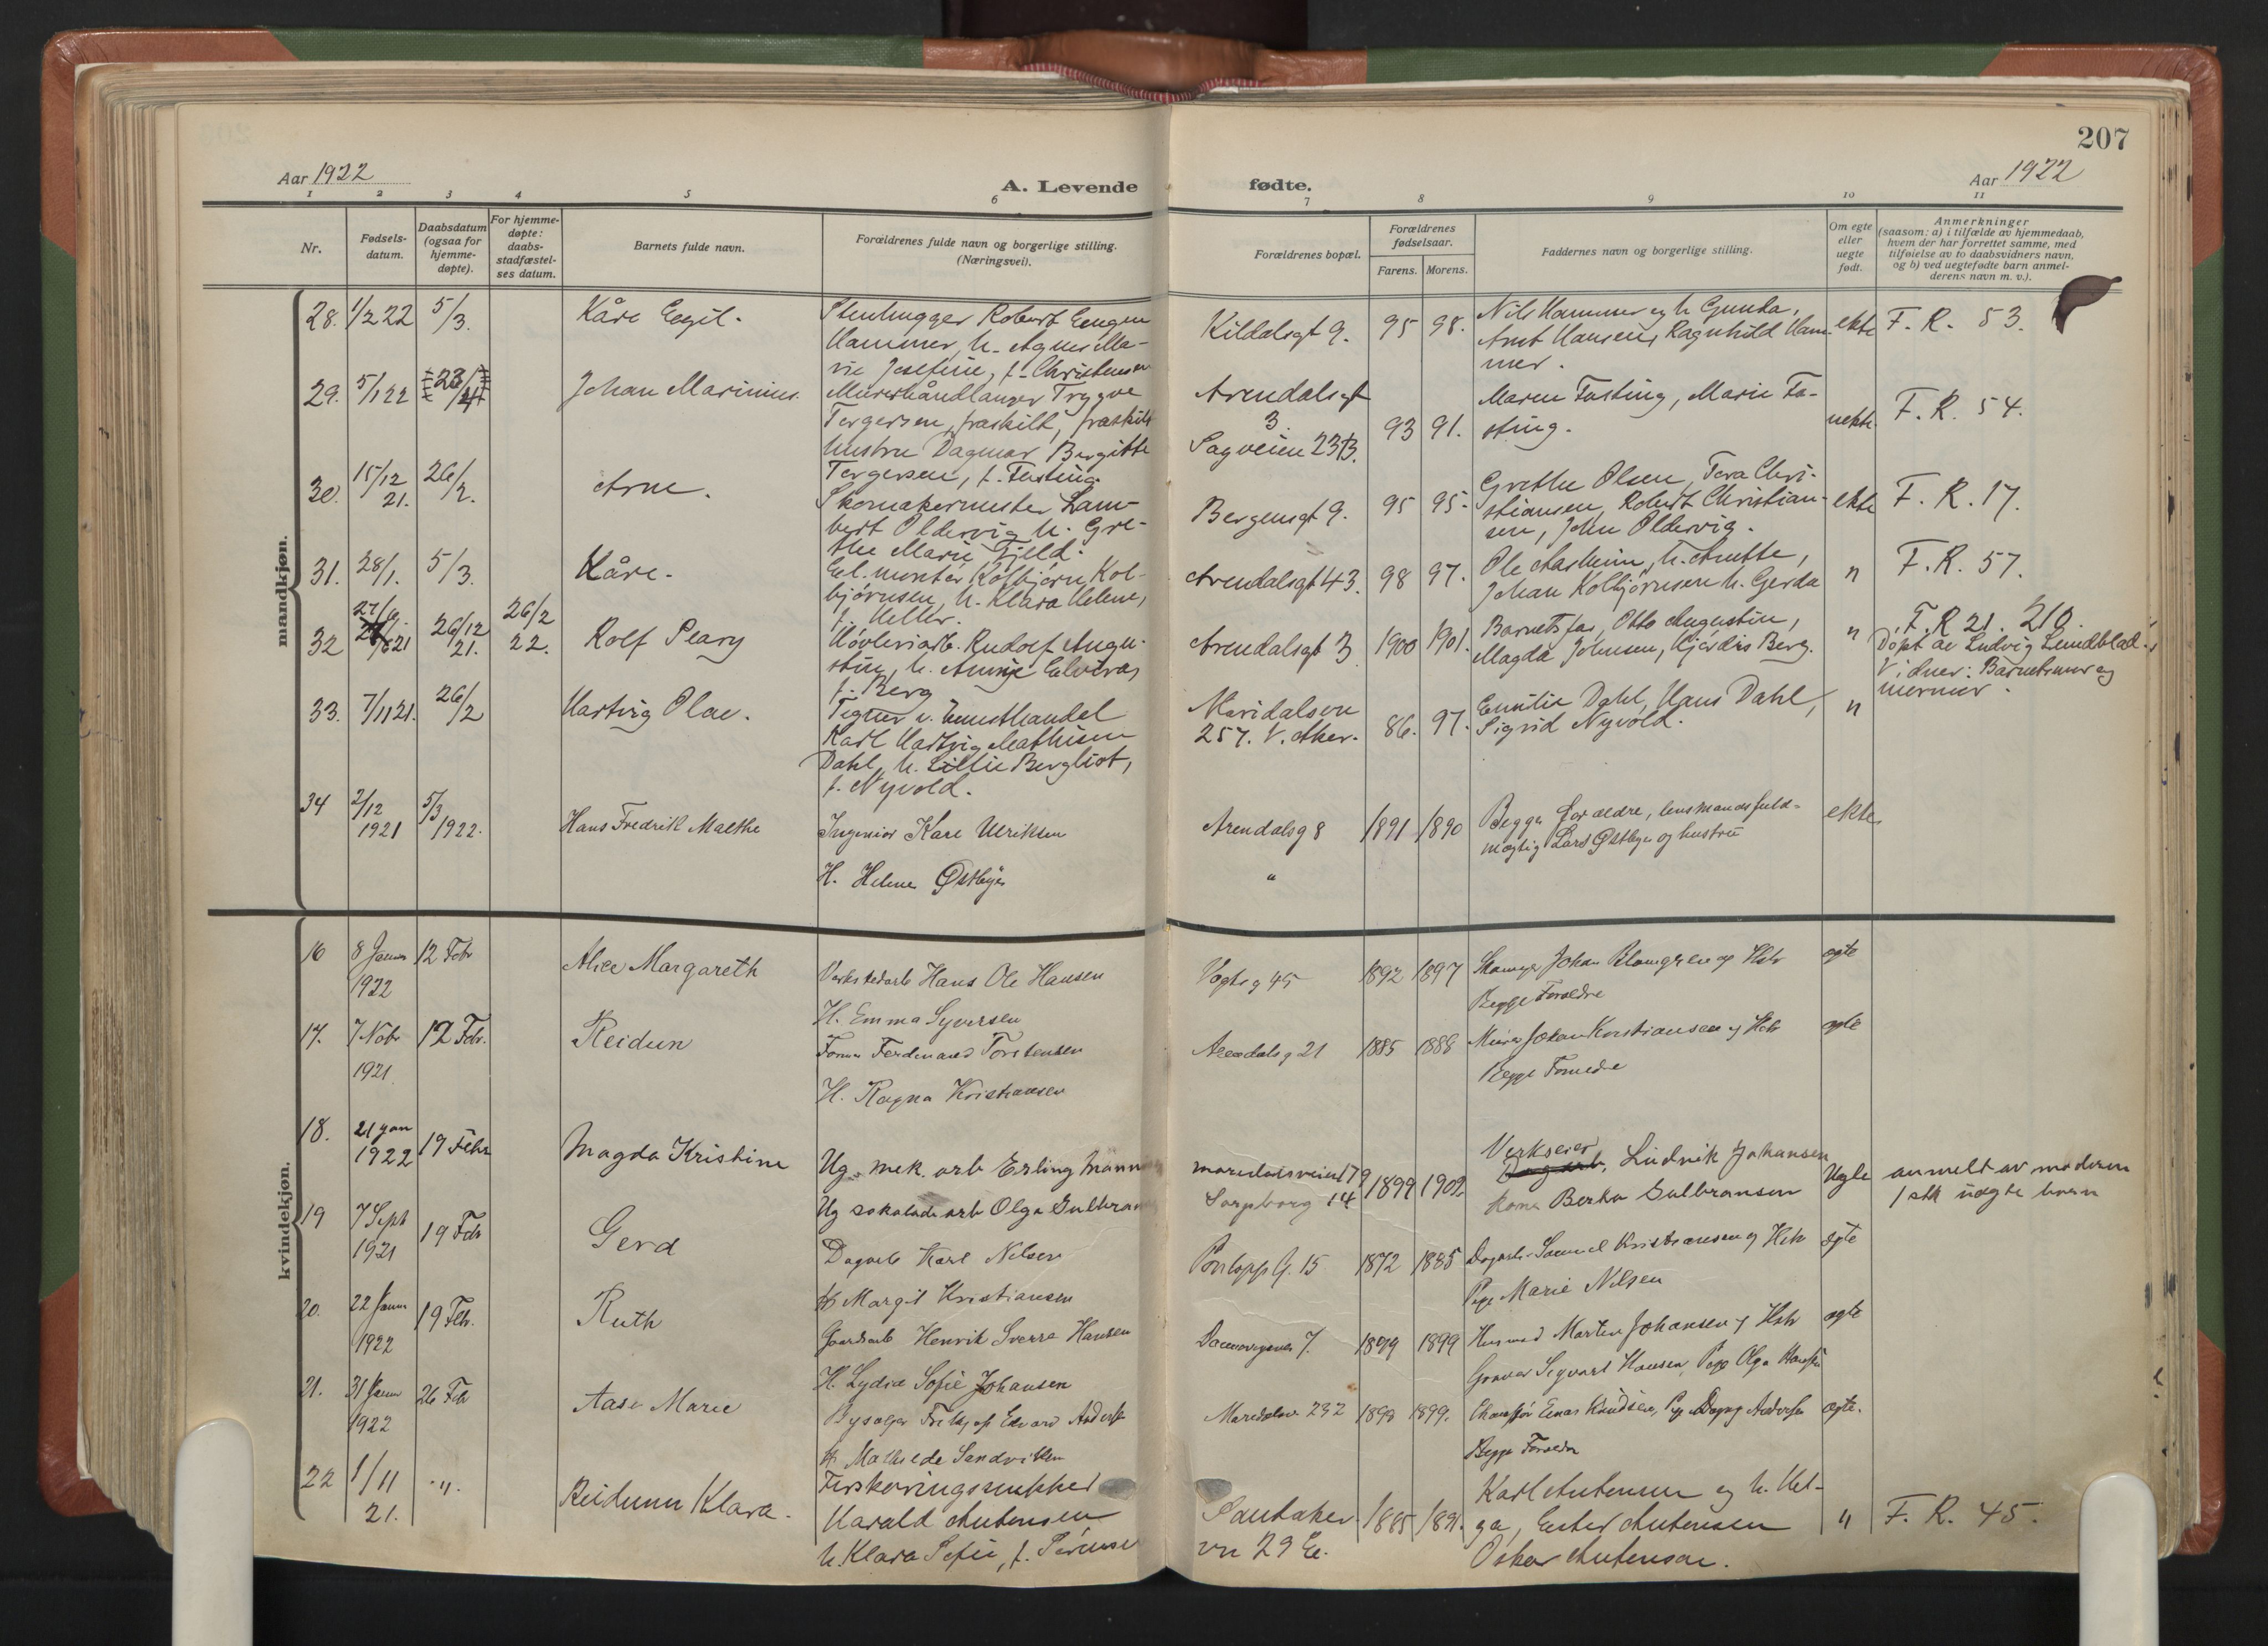 207
Aar 1922
A. Levende
fødte.
Aar 1922
1 2 3 4 5 6 7 8 9 10 11
Nr.
Fødsels-
datum.
Daabsdatum
(ogsaa for
hjemme-
døpte).
For hjemme-
døpte:
daabs-
stadfæstel-
ses datum.
Barnets fulde navn.
Forældrenes fulde navn og borgerlige stilling.
(Næringsvei).
Forældrenes bopæl.
Forældrenes
fødselsaar.
Farens. Morens.
Faddernes navn og borgerlige stilling.
Om egte
eller
uegte
født.
Anmerkninger
(saasom: a) i tilfælde av hjemmedaab,
hvem der har forrettet samme, med
tilføielse av to daabsvidners navn,
og b) ved uegtefødte barn anmel-
derens navn m. v.).
mandkjøn.
28. 1/2 22 5/3. Kåre Eegil.
Stenhugger Robert Eugen
Hammer, h. Agnes Ma-
rie Josefine, f. Christensen
Kildalsgt 9. 95 98.
Nils Hammer og h. Gunda,
Arnt Hansen, Ragnhild Ham-
mer.
ekte F. R. 53.
29. 5/1 22 23/4 Johan Marinius.
Murerhåndlanger Trygve
Tergersen, fraskilt, fraskilt
hustru Dagmar Bergitte
Tergersen, f. Fasting
Arendalsgt
3.
Sagveien 23 B.
93 91.
Maren Fasting, Marie Fa-
sting.
uekte F. R. 54.
30. 15/12 21. 26/2. Arne.
Skomakermester Lam-
bert Oldervig h. Gre-
the Marie Fjeld.
Bergensgt 9. 95 95.
Grethe Olsen, Tora Chri-
stiansen, Robert Christian-
sen, John Oldervig.
ekte F. R. 17.
31. 28/1. 5/3. Kåre.
El. montør Kolbjørn Kol-
bjørnsen, h. Klara Helene,
f. Heller.
Arendalsgt 43. 98 97.
Ole Aasheim, h. Anette,
Johan Kolbjørnsen h. Gerda
n F. R. 57.
32 26/12 21. 26/2 22. Rolf Peary
Høvleriarb. Rudolf Augu-
stin, h. Annie Elvira,
f. Berg
Arendalsgt 3 1900 1901.
Barnets far, Otto Augustin,
Magda Johnsen, Hjørdis Berg.
n F. R 21. 210.
Døpt av Ludvig Lundblad.
Vidner: Barnets mor og
mormor.
33. 7/11 21. 26/2 Hartvig Olav.
Tegner v. kunsthandel
Karl Hartvig Mathisen
Dahl, h. Lillie Bergliot,
f. Nyvold.
Maridalsvn
257. V. Aker. 86. 97.
Emilie Dahl, Hans Dahl,
Sigrid Nyvold.
n
34 2/12 1921 5/3 1922. Hans Fredrik Malthe
Ingeniør Kare Ulriksen
H. Helene Østbye
Arendalsg 8 1891 1890
"
Begge forældre, lensmandsfuld-
mægtig Lars Østbye og hustru
ekte
kvindekjøn.
16 8 Januar 1922 12 Febr Alice Margareth
Verkstedarb Hans Ole Hansen
H. Emma Syversen
Vogts g 45 1892 1897
Johan Blomgren og Hstr
Begge Forældre
egte
17. 7 Nobr 1921 12 Febr. Reidun
Former Ferdinand Torstensen
H. Ragna Kristiansen
Arendals g 21 1885 1888
Murer Johan Kristiansen og Hstr
Begge Forældre
egte
18. 21 jan 1922 19 Febr Magda Kristine
Ug. mek. arb Erling
Ug sokolade arb Olga Gulbran
maredalsveien 179
Sarpborg 14
1899 1902.
Verkseier
Ludvik Johansen
kone Berta Gulbransen
Uegte anmelt av moderen
1 stk uægte barn
19 7 Sept 1921 19 Febr Gerd
Dagarb Karl Nilsen
H Margit Kristiansen
G. 15 1872 1885
Dagarb. Samuel Kristiansen og Hstr
Pige Marie Nilsen
egte
20. 22 Januar 1922 19 Febr. Ruth
Gaardsarb Henrik Sverre Hansen
H. Lydia Sofie Johansen
7. 1899 1899
Martin Johansen og Hstr
Graver Sigvart Hansen, Pige Olga
egte
21. 31 Januar 1922 26 Febr Aase Marie
Bysælger Fritjof Edvard
H Mathilde Sandvikken
Maredalsv 232 1898 1899.
Chauffør Einar Knudsen, Pige Dagny Andersen
Begge Forældre
egte.
22 1/11 21. " Reidunn Klara.
Harald Antonsen
h. Klara Sofie, f.
Sandaker-
vn 29 E. 1885 1891.
Karl Antonsen og h. Hel-
ga, Ester Antonsen
Oskar Antonsen.
" F. R. 45.